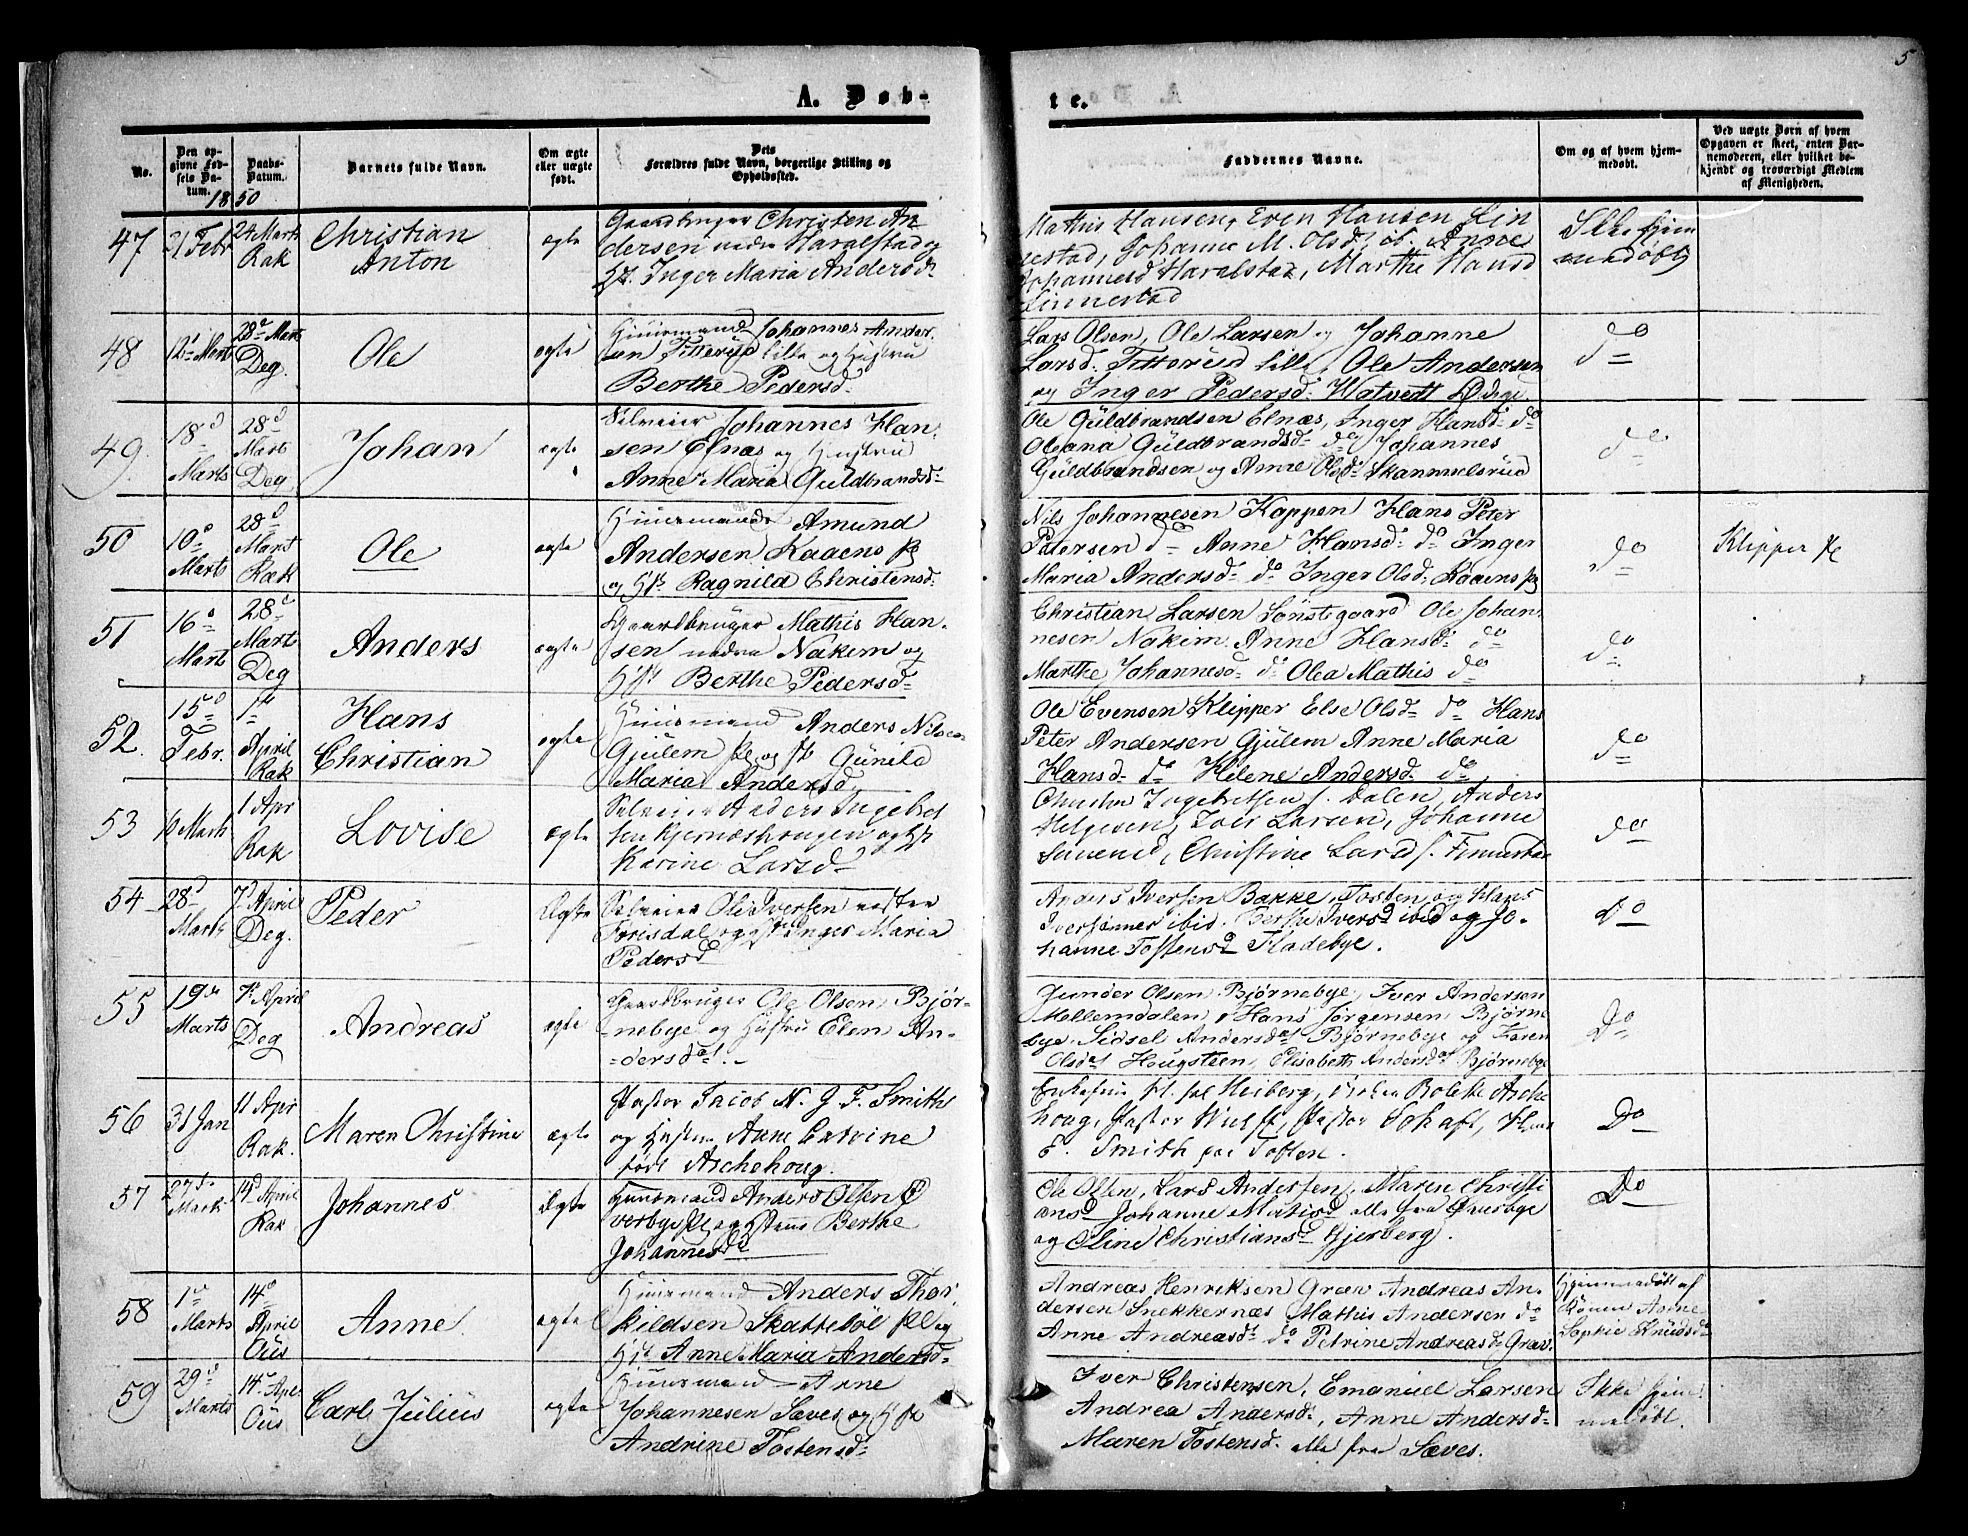 5
A. Døb-
te.
No.
Den op-
givne Fød-
sels Da-
tum.
Daabs-
Datum.
1850
Barnets fulde Navn.
Om ægte
eller uægte
født.
Dets
Forældres fulde Navn, borgerlige Stilling og
Opholdssted.
Faddernes Navne.
Om og af hvem hjem-
medøbt.
Ved uægte Børn af hvem
Opgaven er skeet, enten Bar-
nemoderen, eller hvilket be-
kjendt og troværdigt Medlem
af Menigheden.
47
21 Febr
24 Marts
Rak
Christian
Anton
ægte
Gaardbruger Christen An
dersen nedre Haralstad og
H. Inger Maria Andersd
Mathis Hansen, Even Hansen Lin
nestad, Johanne M. Olsd ib. Anne
Johannesd Haralstad, Marthe Hansd
Linnestad
Ikke hjem
medøbt
48
12 Marts
28d Marts
Deg.
Ole
ægte
Huusmand Johannes Ander
sen Titterud lille og Hustru
Berthe Pedersd.
Lars Olsen, Ole Larsen og Johanne
Larsd. Titterud lille, Ole Andersen
og Inger Pedersd. Hotvedt
do
49.
18d
Marts
28d
Marts
Deg
Johan
ægte
Selveier Johannes Han,
sen Elnæs og Hustru
Anne Maria Guldbrandsd
Ole Guldbrandsen Elnæs, Inger Hansd do
Oleana Guldbrandsd do Johannes
Guldbrandsen og Anne Olsd Skammelsrud
do
50
10d
Marts
28d
Marts
Rak
Ole
ægte
Huusmand Amund
Andersen Kaaens
og Hst. Ragnild Christensd.
Nils Johannesen Kappen Hans Peter
Petersen do Anne Hansd do Inger
Maria Andersd do Inger Olsd Kaaens
do
Klipper
51
16d
Marts
28d
Marts
Deg
Anders
ægte
Gaardbruger Mathis Han,
sen nedre Nakim og
Hst Berthe Pedersd
Christian Larsen Sønstegaard Ole Johan,
nesen Nakim Anne Hansd do
Marthe Johannesd do Olea Mathis do
do
52.
15d
Febr.
1st
April
Rak
Hans
Christian
ægte
Huusmand Anders Nilsen
Gjulem og Gunild
Maria Andersd.
Ole Evensen Klipper Else Olsd do Hans
Peter Andersen Gjulem Anne Maria
Hansd do Helene Andersd do
do
53
Marts
1 Apr
Rak
Lovise
ægte
Selveier Anders Ingebret
sen Kjernæshougen og Hst
Karine Larsd
Ingebretsen Dalen, Anders
Helgesen, Iver Larsen, Johanne
Christine Larsd
do
54
28d
Marts
7d April
Deg.
Peder
Ægte
Selveier Ole Iversen vestre
og Hst Inger Maria
Pedersd
Anders Iversen Bakke, Tosten og Hans
Iversønner ibid. Berthe Iversd ibid og Jo-
hanne Tostensd Fladebye.
Do
55
19de
Marts
7d April
Deg
Andreas
ægte
Gaardbruger Ole Olsen, Bjør-
nebye og Hustru Elen An-
dersdat.
Gunder Olsen Bjørnebye, Iver Andersen
Mellemdalen, Hans Jørgensen, Bjørne
bye. Sidsel Andersdat Bjørnebye og Karen
Olsdat Hougsteen, Elisabeth Andersdat Bjørnebye
Do
56
31 Jan
11 Apr
Rak.
Maren Christine
ægte
Pastor Jacob N. J. F. Smith
og Hustru Anne Catrine
født Aschehoug.
Heiberg, Bolette Asche
houg, Pastor Wulff, Pastor Schaft, Hans
E. Smith paa Toften.
Do
57
27d
Marts
14d April
Rak
Johannes
Ægte
Huusmand Anders Olsen
verbye og Berthe
Johannesd
Ole Olsen, Lars Andersen, Maren Christi
ansd Johanne Mathisd alle fra
og Oline Christiansd Gjerberg.
Do
58
1d
Marts
14d
April
Øus
Anne
ægte
Huusmand Anders Thor
kildsen Skattebøl og
Hst Anne Maria Andersd
Andreas Henriksen Grav Andreas An,
dersen Snekkernæs Mathis Andersen do
Anne Andreasd do Petrine Andreasd Grav.
Hjemmedøbt af
Konen Anne
Sophie Knudsd
59
29d
Marts
14d Apr
Øus
Carl Julius
ægte
Huusmand Arne
Johannesen Sæves og Hst
Andrine Tostensd
Iver Christensen, Emanuel Larsen
Andrea Andersd, Anne Andersd
Maren Tostensd. alle fra Sæves.
Ikke hjem
medøbt.